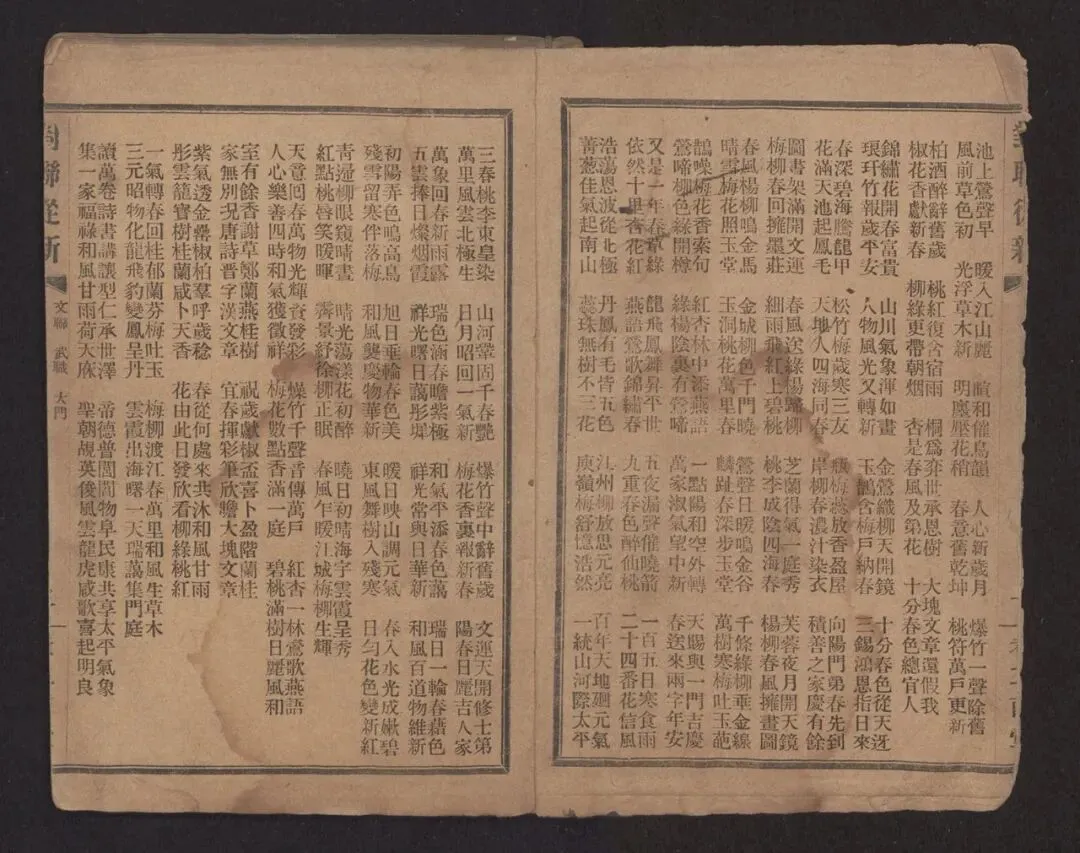 池上鶯聲早 暖入江山麗 暄和催鳥韻 人心新歲月 爆竹一聲除舊
風前草色初 光浮草木新 明麗壓花稍 春意舊乾坤 桃符萬戶更新
柏酒醉辭舊歲 桃紅復含宿雨 桐為弃世承恩樹 大塊文章還假我
椒花香獻新春 柳綠更帶朝烟 杏是春風及第花 十分春色總宜人
錦繡花開春富貴 山川氣象渾如畫 金鶯織柳天開鏡 十分春色從天迓
琅玕竹報歲平安 人物風光又轉新 玉鵲含梅戶納春 三錫鴻恩指日來
春深碧海騰龍甲 松竹梅歲寒三友 嶺梅蕊放香盈屋 向陽門弟春先到
花滿天池起鳳毛 天地人四海同春 岸柳春濃汁染衣 積善之家慶有餘
圖書架滿開文運 春風送綠楊歸柳 芝蘭得氣一庭秀 芙蓉夜月開天鏡
梅柳春回擁墨莊 細雨飛紅上碧桃 桃李成陰四海春 楊柳春風擁畫圖
春風楊柳鳴金馬 金城柳色千門曉 鶯聲日暖鳴金谷 千條綠柳垂金線
晴雪梅花照玉堂 玉洞桃花萬里春 麟趾春深步玉堂 萬樹寒梅吐玉葩
鵲噪梅花香索句 紅杏林中添燕語 一點陽和空外轉 天賜與一門吉慶
鶯啼柳色綠開樽 綠楊陰裏有鶯啼 萬家淑氣望中新 春送來兩字年安
又是一年春草綠 龍飛鳳舞昇平世 五夜漏聲催曉箭 一百五日寒食雨
依然十里杏花紅 燕語鶯歌錦繡春 九重春色醉仙桃 二十四番花信風
浩蕩恩波從北極 丹鳳有毛皆五色 江州柳放思元亮 百年天地廻元氣
菁葱佳氣起南山 蕊珠無樹不三花 庾嶺梅舒憶浩然 一統山河際太平
三春桃李東皇染 山河鞏固千春艷 爆竹聲中辭舊歲 文運天開修士第
萬里風雲北極生 日月昭回一氣新 梅花香裏報新春 陽春日麗吉人家
萬象回春新雨露 瑞色涵春瞻紫極 和氣平添春色藹 瑞日一輪春藹色
五雲捧日燦烟霞 祥光曙日藹彤墀 祥光常與日華新 和風百道物維新
初陽弄色鳴高鳥 旭日垂輪春色美 暖日映山調元氣 春入水光成嫩碧
殘雪留寒伴落梅 和風襲慶物華新 東風舞樹入殘寒 日勻花色變新紅
青歸柳眼窺晴晝 晴光蕩漾花初醉 曉日初晴海宇雲霞呈秀
紅點桃唇笑暖暉 霽景紓徐柳正眠 春風乍暖江城梅柳生輝
天意回春萬物光輝資發彩 爆竹千聲音傳萬戶 紅杏一林鶯歌燕語
人心樂善四時和氣獲徵祥 梅花數點香滿一庭 碧桃滿樹日麗風和
室有餘香謝草鄭蘭燕桂樹 祝歲獻椒盃喜卜盈階蘭桂
家無別況唐詩晋字漢文章 宜春揮彩筆欣瞻大塊文章
紫氣透金罍椒柏羣呼歲稔 春從何處來共沐和風甘雨
彤雲龍寶樹桂蘭咸卜天香 花由此日發欣看柳綠桃紅
一氣轉春回桂郁蘭芬梅吐玉 梅柳渡江春萬里和風生草木
三元昭物化龍飛豹變鳳呈丹 雲霞出海曙一天瑞藹集門庭
讀萬卷詩書講讓型仁承世澤 帝德普閭閻物阜民康共享太平氣象
集一家福祿和風甘雨荷大庥 聖朝覘英俊風雲龍虎咸歌喜起明良
文聯 武職 大門